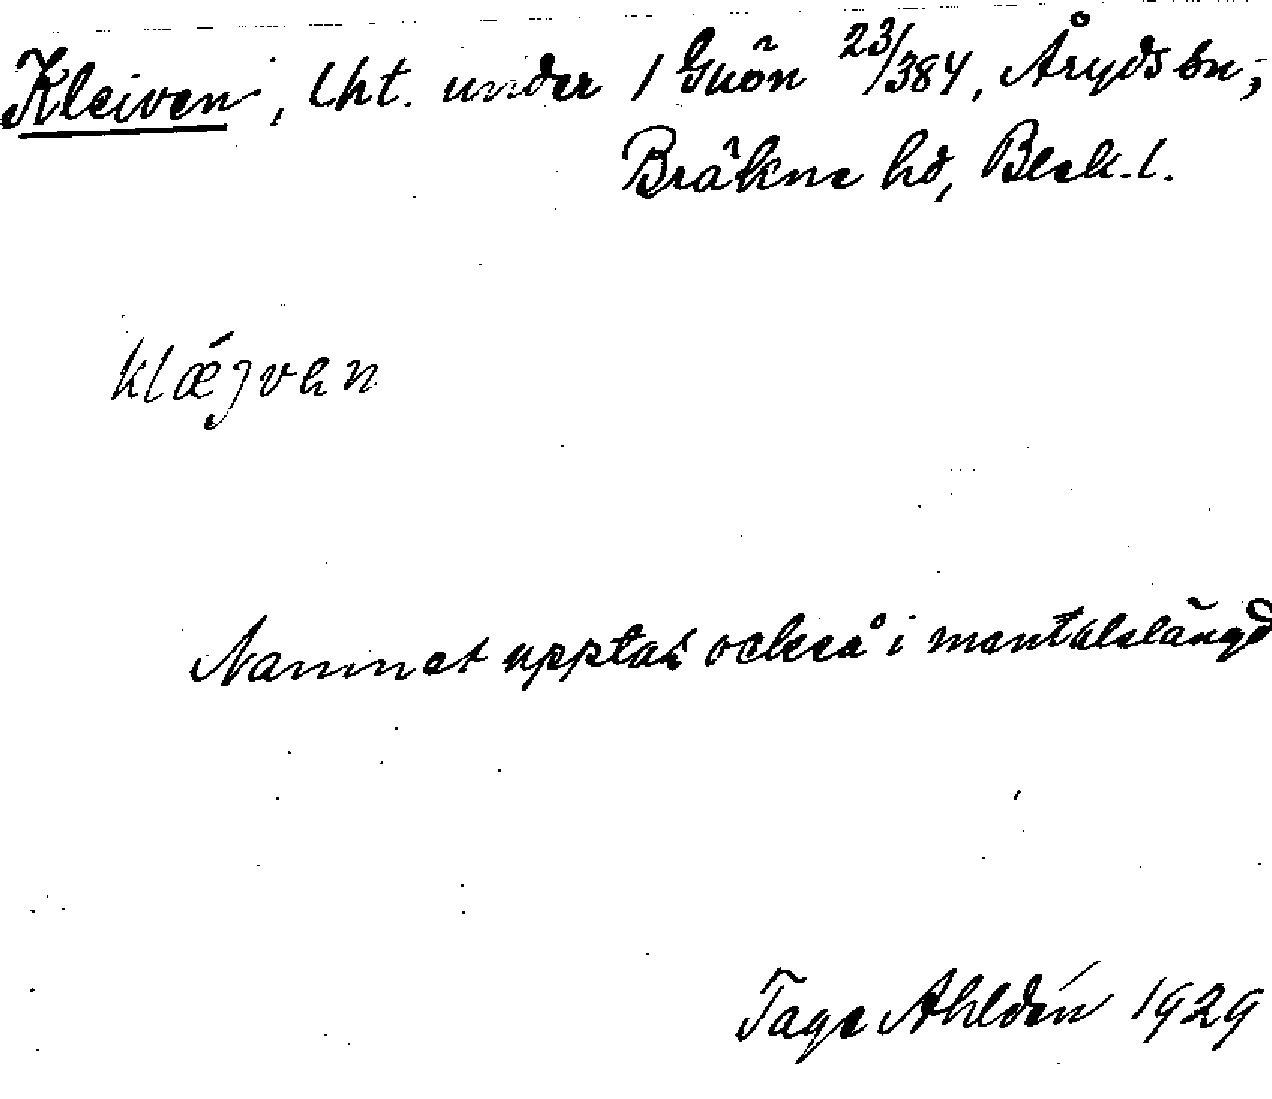 Kleiven, lht. under 1 Guön 23/384, Åryds sn;
Bräkne hd, Blek. l.
klǽjvən
Namnet upptas också i mantalslängd
Tage Ahldén 1929